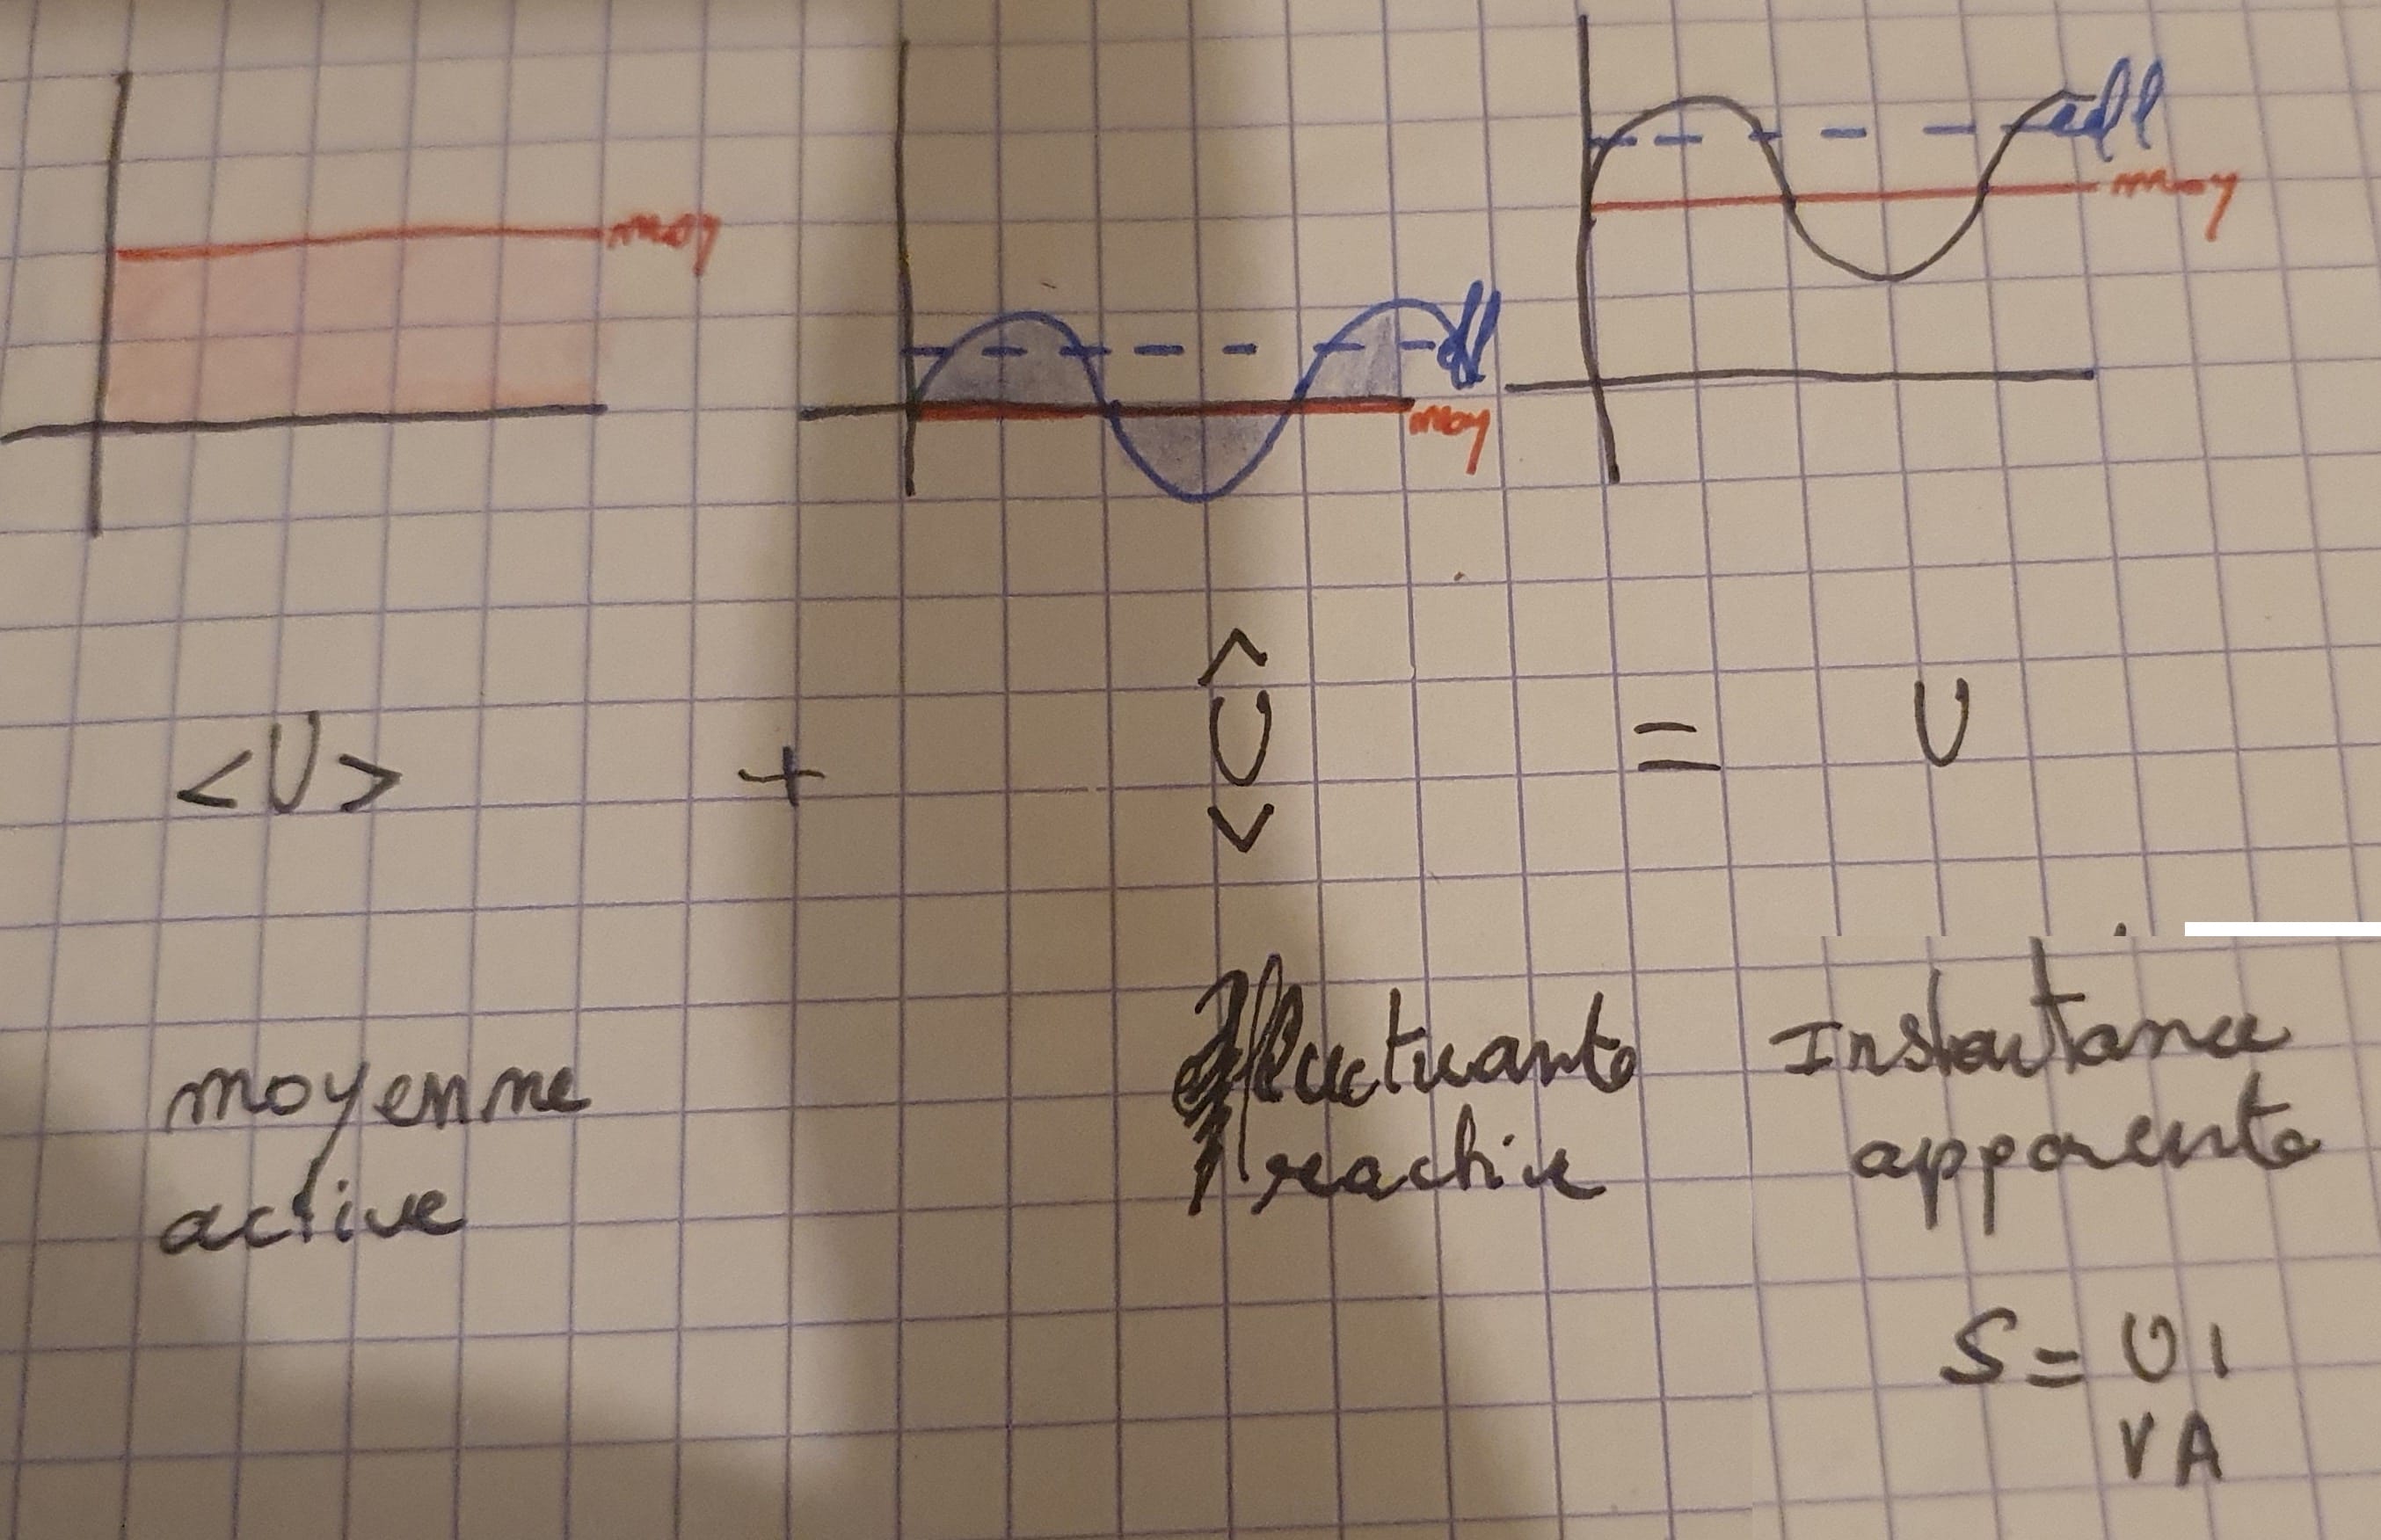 eff
moy
moy
eff
moy
<U> + Û = U
moyenne
active
fluctuante
reactive
Instantanee
apparente
S = UI
VA